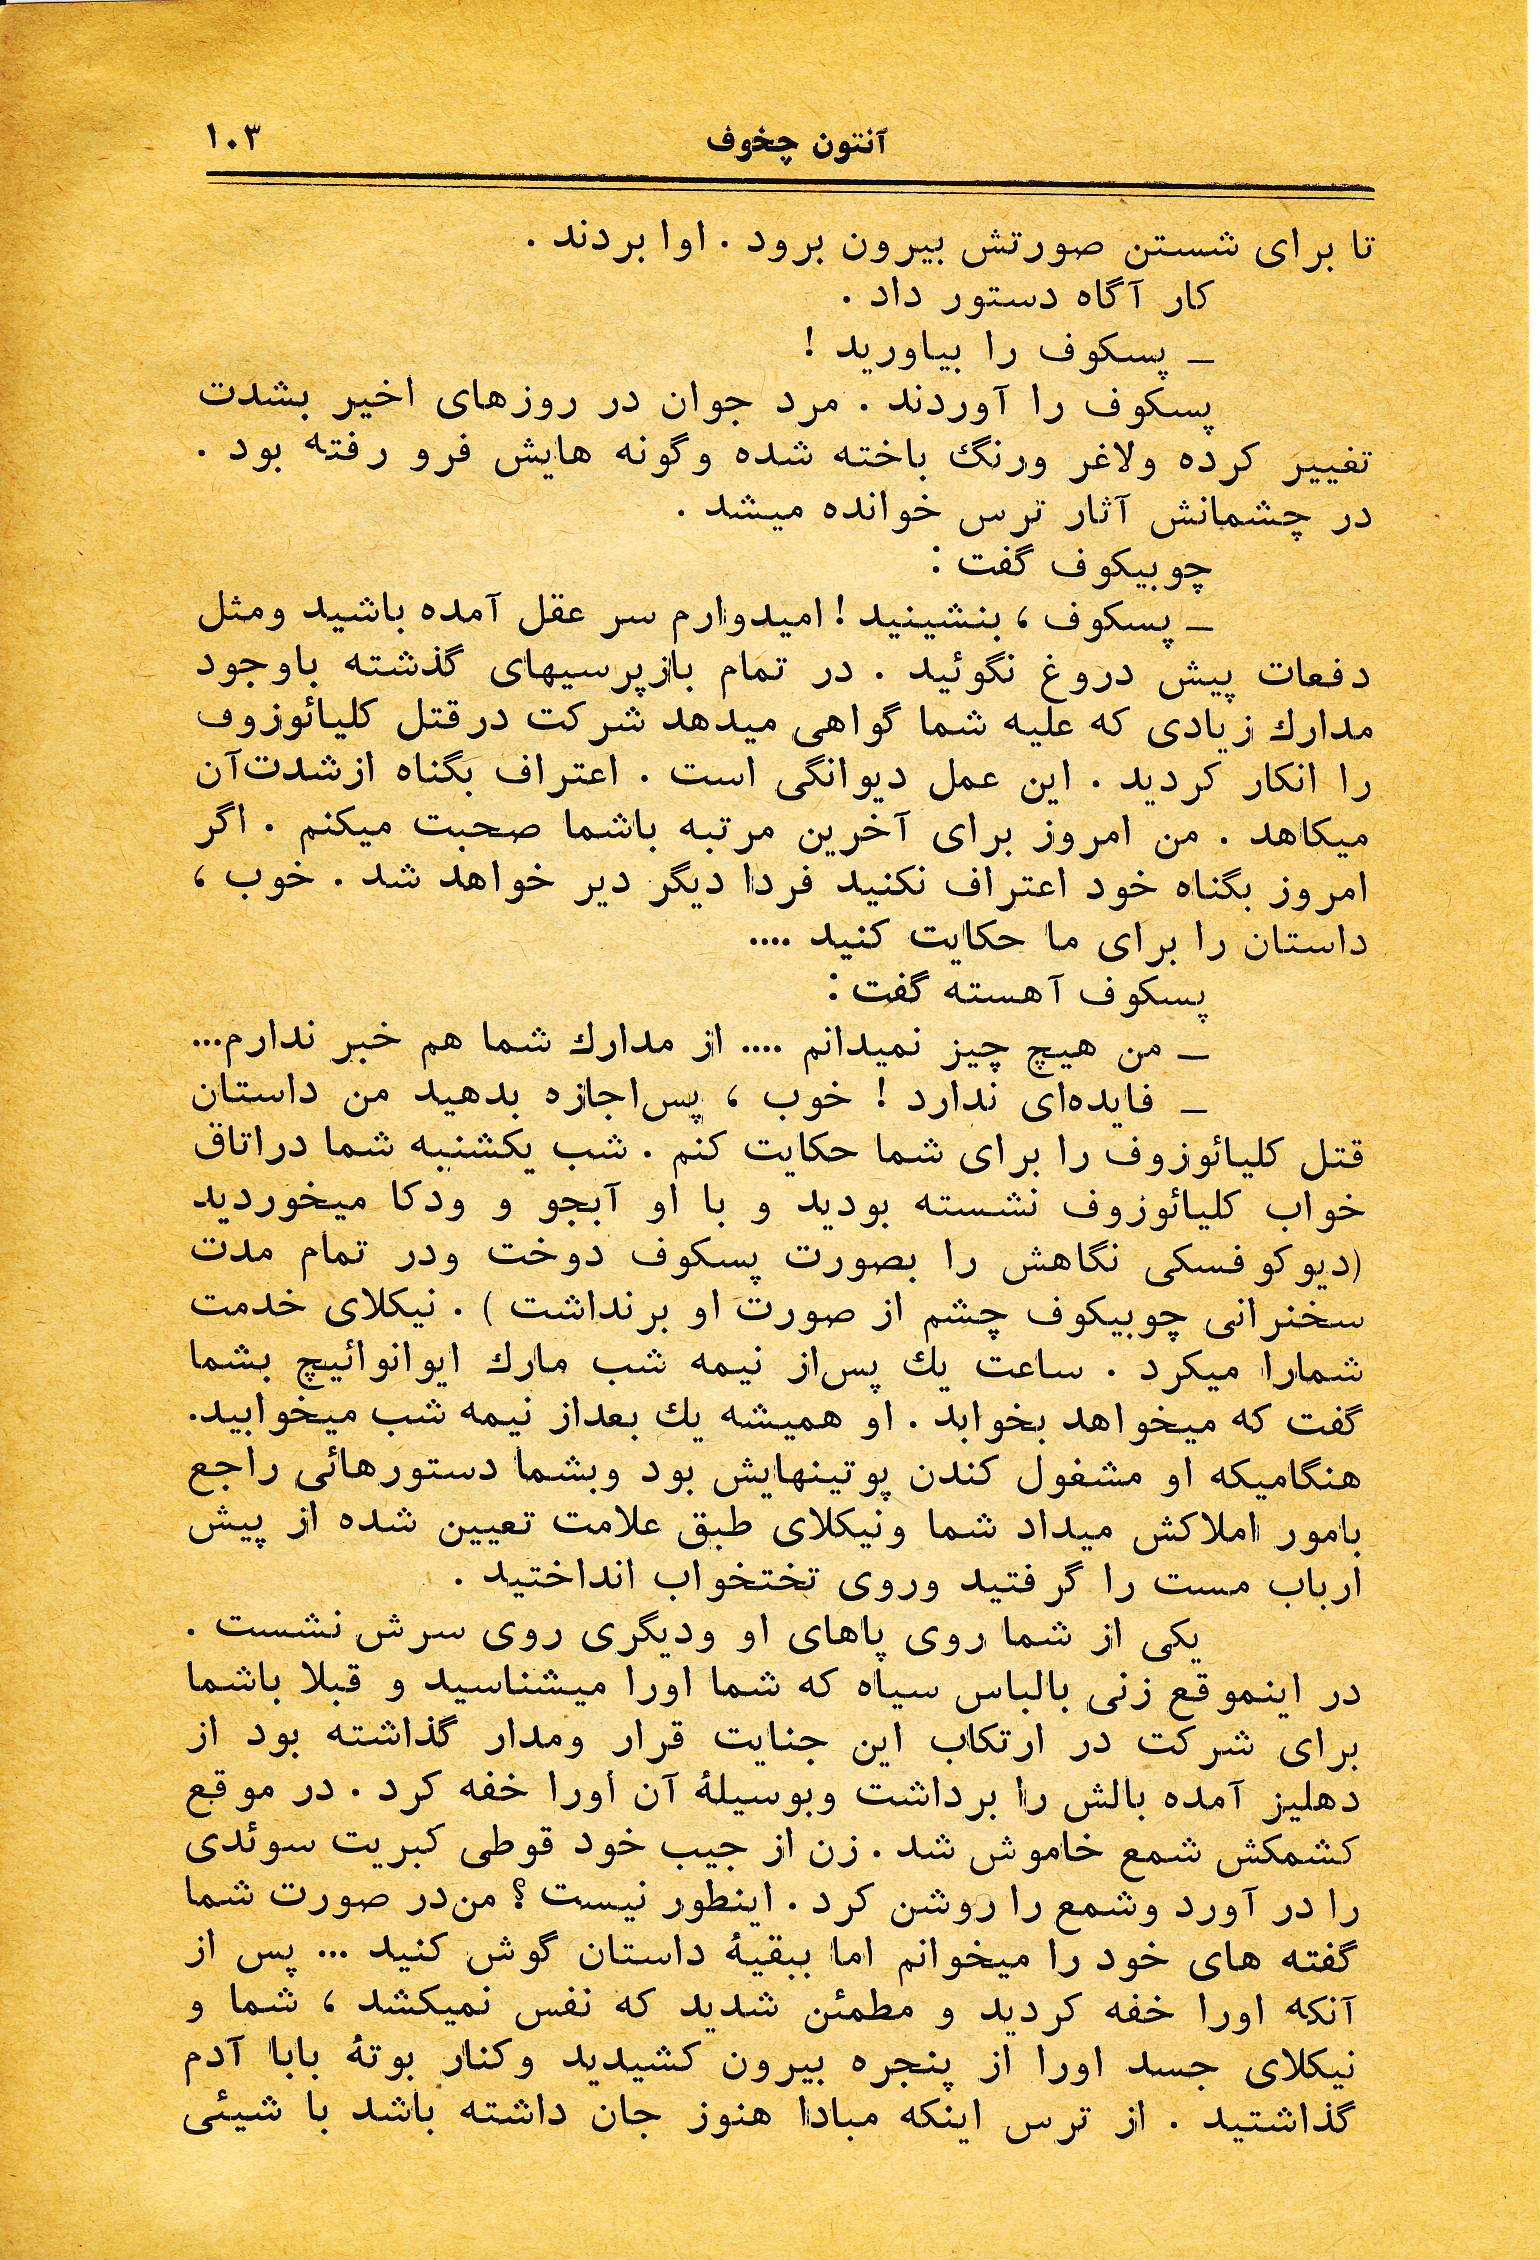 آنتون چخوف ۱۰۳
تا برای شستن صورتش بیرون برود . اوا بردند .
کار آگاه دستور داد .
ــ پسکوف را بیاورید !
پسکوف را آوردند . مرد جوان در روزهای اخیر بشدت
تغییر کرده ولاغر ورنگ باخته شده وگونه هایش فرو رفته بود .
در چشمانش آثار ترس خوانده میشد .
چوبیکوف گفت :
ــ پسکوف ، بنشینید ! امیدوارم سر عقل آمده باشید ومثل
دفعات پیش دروغ نگوئید . در تمام بازپرسیهای گذشته باوجود
مدارك زیادی که علیه شما گواهی میدهد شرکت درقتل کلیائوزوف
را انکار کردید . این عمل دیوانگی است . اعتراف بگناه ازشدت‌آن
میکاهد . من امروز برای آخرین مرتبه باشما صحبت میکنم . اگر
امروز بگناه خود اعتراف نکنید فردا دیگر دیر خواهد شد . خوب ،
داستان را برای ما حکایت کنید ....
پسکوف آهسته گفت :
ــ من هیچ چیز نمیدانم .... از مدارك شما هم خبر ندارم...
ــ فایده‌ای ندارد ! خوب ، پس‌اجازه بدهید من داستان
قتل کلیائوزوف را برای شما حکایت کنم . شب یکشنبه شما دراتاق
خواب کلیائوزوف نشسته بودید و با او آبجو و ودکا میخوردید
(دیوکوفسکی نگاهش را بصورت پسکوف دوخت ودر تمام مدت
سخنرانی چوبیکوف چشم از صورت او برنداشت ) . نیکلای خدمت
شمارا میکرد . ساعت یك پس‌از نیمه شب مارك ایوانوائیچ بشما
گفت که میخواهد بخوابد . او همیشه یك بعداز نیمه شب میخوابید.
هنگامیکه او مشغول کندن پوتینهایش بود وبشما دستورهائی راجع
بامور املاکش میداد شما ونیکلای طبق علامت تعیین شده از پیش
ارباب مست را گرفتید وروی تختخواب انداختید .
یکی از شما روی پاهای او ودیگری روی سرش نشست .
در اینموقع زنی بالباس سیاه که شما اورا میشناسید و قبلا باشما
برای شرکت در ارتکاب این جنایت قرار ومدار گذاشته بود از
دهلیز آمده بالش را برداشت وبوسیلهٔ آن اورا خفه کرد . در موقع
کشمکش شمع خاموش شد . زن از جیب خود قوطی کبریت سوئدی
را در آورد وشمع را روشن کرد . اینطور نیست ؟ من‌در صورت شما
گفته های خود را میخوانم اما ببقیهٔ داستان گوش کنید ... پس از
آنکه اورا خفه کردید و مطمئن شدید که نفس نمیکشد ، شما و
نیکلای جسد اورا از پنجره بیرون کشیدید وکنار بوتهٔ بابا آدم
گذاشتید . از ترس اینکه مبادا هنوز جان داشته باشد با شیئی